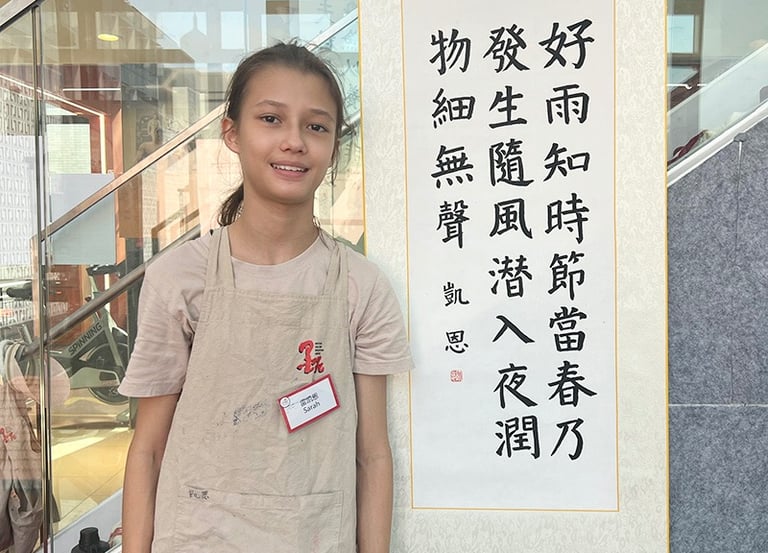 好雨知時節當春乃
發生隨風潜入夜潤
物細無聲
凱恩
Sarah
凱恩
SPINNING